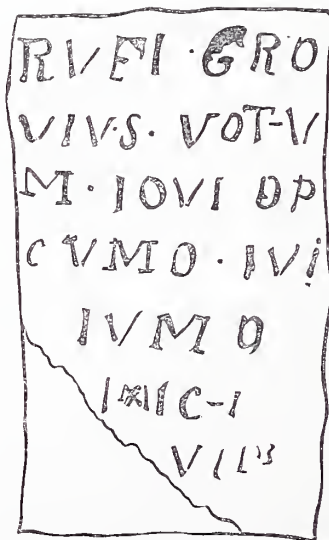 RVEI · GRO
VIVS · VOT-V
M · IOVI OP
CVMO · IVI
IVMO
IC-I
VII